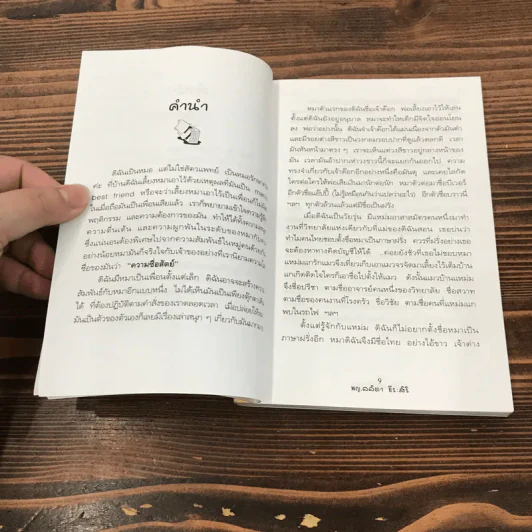 คำนำ
ดิฉันเป็นหมอ แต่ไม่ใช่สัตวแพทย์ เป็นหมอรักษาคน
ค่ะ ที่บ้านดิฉันเลี้ยงหมาเอาไว้ด้วยเหตุผลที่มันเป็น man's
best friend หรือจะว่าเลี้ยงหมาเอาไว้เป็นเพื่อนก็
ในเมื่อถือมันเป็นเพื่อนเสียแล้ว เราก็พยายามเข้าใจความรู้สึก
พฤติกรรม และความต้องการของมัน ทำให้ได้ทั้งความ
ความตื่นเต้น และความผูกพันในระดับของหมากับคน
ซึ่งแน่นอนต้องพิเศษไปจากความสัมพันธ์ในหมู่คนด้วยกัน
อย่างน้อยหมามันก็จริงใจกับเจ้าของอย่างที่เรานิยามความ
ซื่อของมันว่า "ความซื่อสัตย์"
ดิฉันมีหมาเป็นเพื่อนตั้งแต่เล็ก ดิฉันอาจจะสร้างความ
สัมพันธ์กับหมาอีกแบบหนึ่ง ไม่ได้เห็นมันเป็นเพียงตุ๊กตาเดิน
ได้ ที่ต้องปฏิบัติตามคำสั่งของเราตลอดเวลา เมื่อปล่อยให้หมา
มันเป็นตัวของตัวเองก็เลยมีเรื่องเล่าสนุก ๆ เกี่ยวกับมันมากมาย
หมาตัวแรกของดิฉันชื่อเจ้าด๊อก พ่อเลี้ยงเอาไว้ให้เล่น
ตั้งแต่ดิฉันยังอยู่อนุบาล หมาจะทำไทเด็กมีจิตใจอ่อนโยน
ลง พ่อว่าอย่างนั้น ดิฉันจำเจ้าด๊อกได้แม่นเนื่องจากตัวมันดำ
และมีรอยด่างสีขาวเป็นวงกลมรอบปากที่ดูแล้วตลกดี เวลา
มันหันหน้ามาตรง ๆ เราจะเห็นแถวสีขาวอยู่กลางหน้าของ
มัน เวลามันอ้าปากห่วงขาวนี้ก็จะแยกกันออกไป ความ
ทรงจำเกี่ยวกับเจ้าด๊อกอีกอย่างหนึ่งคือมันดุ และเคยไล่กัด
ใครต่อใครให้พ่อเสียเงินมานักต่อนัก หมาตัวต่อมาชื่อเบิร์วอร์
อีกตัวชื่อแฮ็ปปี้ (ไม่รู้เหมือนกันว่าแปลว่าอะไร) อีกตัวชื่อบราวนี่
ฯลฯ ทุกตัวล้วนแล้วแต่มีชื่อเป็นฝรั่ง
เมื่อดิฉันเป็นวัยรุ่น มีแหม่มอาสาสมัครคนหนึ่งมาทำ
งานที่วิทยาลัยแห่งเดียวกับที่แม่ดิฉันสอน เธอบ่นว่า
ทำไมคนไทยชอบตั้งชื่อหมาเป็นภาษาฝรั่ง ควรที่ฝรั่งอย่างเธอ
จะต้องหาทางคิดบัญชีให้ได้ ..ค่อยยังชั่วที่เธอไม่ชอบหมา
แหม่มแกรักแมวจึงเที่ยวเก็บเอาแมวจรจัดมาเลี้ยงไว้เต็มบ้าน
แกเกิดติดใจใครก็เอาชื่อไปตั้งให้แมว ดังนั้นแมวบ้านแหม่ม
จึงชื่อปรีชา ตามชื่ออาจารย์คนหนึ่งของวิทยาลัย ชื่อสวาท
ตามชื่อของคนงานที่โรงครัว ชื่อวิชัย ตามชื่อคนที่แหม่มแก
พบในรถไฟ ฯลฯ
ตั้งแต่รู้จักกับแหม่ม ดิฉันก็ไม่อยากตั้งชื่อหมาเป็น
ภาษาฝรั่งอีก หมาดิฉันจึงมีชื่อไทย อย่างไอ้ขาว เจ้าด่าง
9